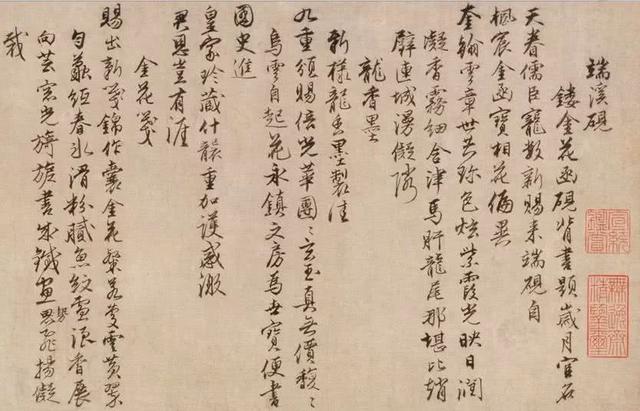 端溪硯
鏤金花函硯背書題歲月官名
天眷儒臣寵數新賜来端硯自
楓宸金函寶相花偏異
奎翰雲章世共珎色炫紫霞光映日潤
凝香霧細含津馬肝龍尾那堪比趙
璧連城漫儗隣
龍香墨
新樣龍香墨製佳
九重頒賜倍光華團〻玄玉真無價馥〻
烏雲自起花永鎮文房為世寶便書
國史進
皇家珎藏什襲重加護感激
君恩豈有涯
金花箋
賜出新箋錦作囊金花粲若雲黄翠
勻春氷滑粉膩魚紋雪浪香展
向芸窓光旖旎書成鐵畫飛揚儗